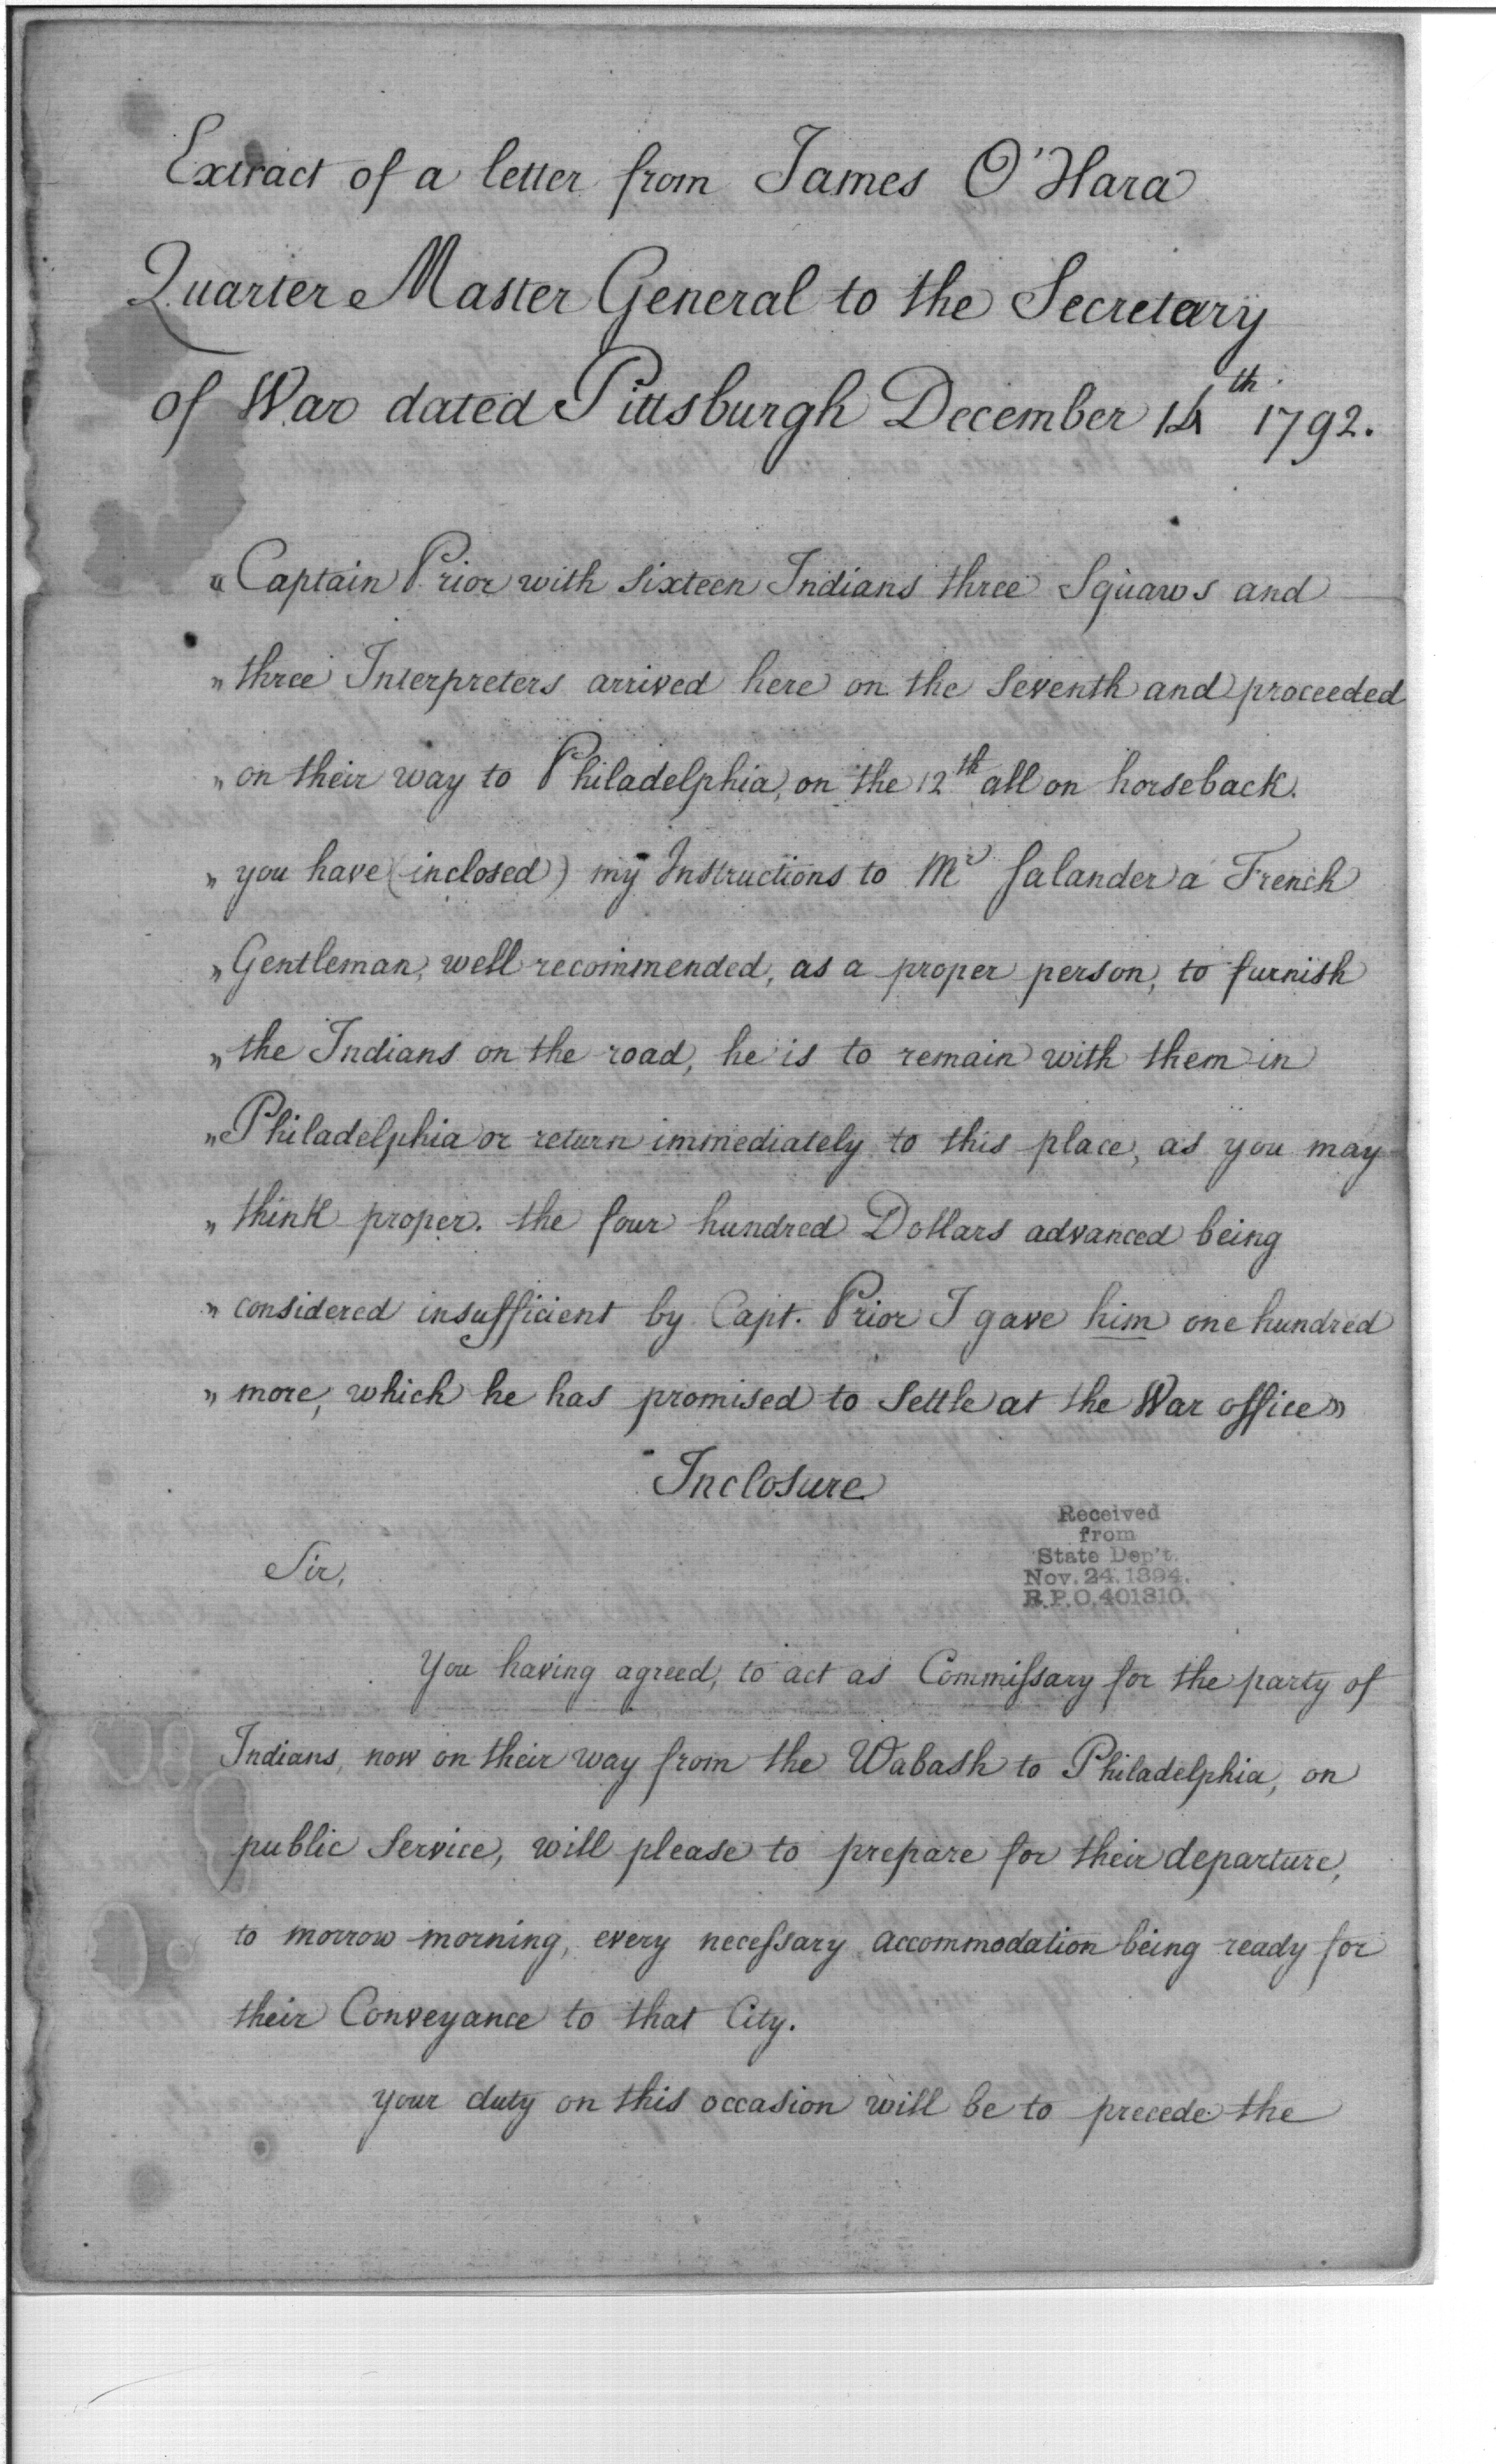 Extract of a letter from James O'Hara
Quarter Master General to the Secretary
of War dated Pittsburgh December 14th 1792.
"Captain Prior with sixteen Indians three Squaws and
"three Interpreters arrived here on the Seventh and proceeded
"on their way to Philadelphia, on the 12th all on horseback.
"you have (inclosed) my Instructions to Mr Salander a French
"Gentleman, well recommended, as a proper person, to furnish
"the Indians on the road, he is to remain with them in
"Philadelphia or return immediately to this place, as you may
"think proper. the four hundred Dollars advanced being
"considered insufficient by Capt. Prior I gave him one hundred
"more, which he has promised to Settle at the War office"
Inclosure
Received
from
State Dep't.
Nov. 24, 1894.
R.P.O. 401310.
Sir,
You having agreed, to act as Commissary for the party of
Indians, now on their way from the Wabash to Philadelphia, on
public Service, will please to prepare for their departure,
to morrow morning, every necessary accommodation being ready for
their Conveyance to that City.
your duty on this occasion will be to precede the